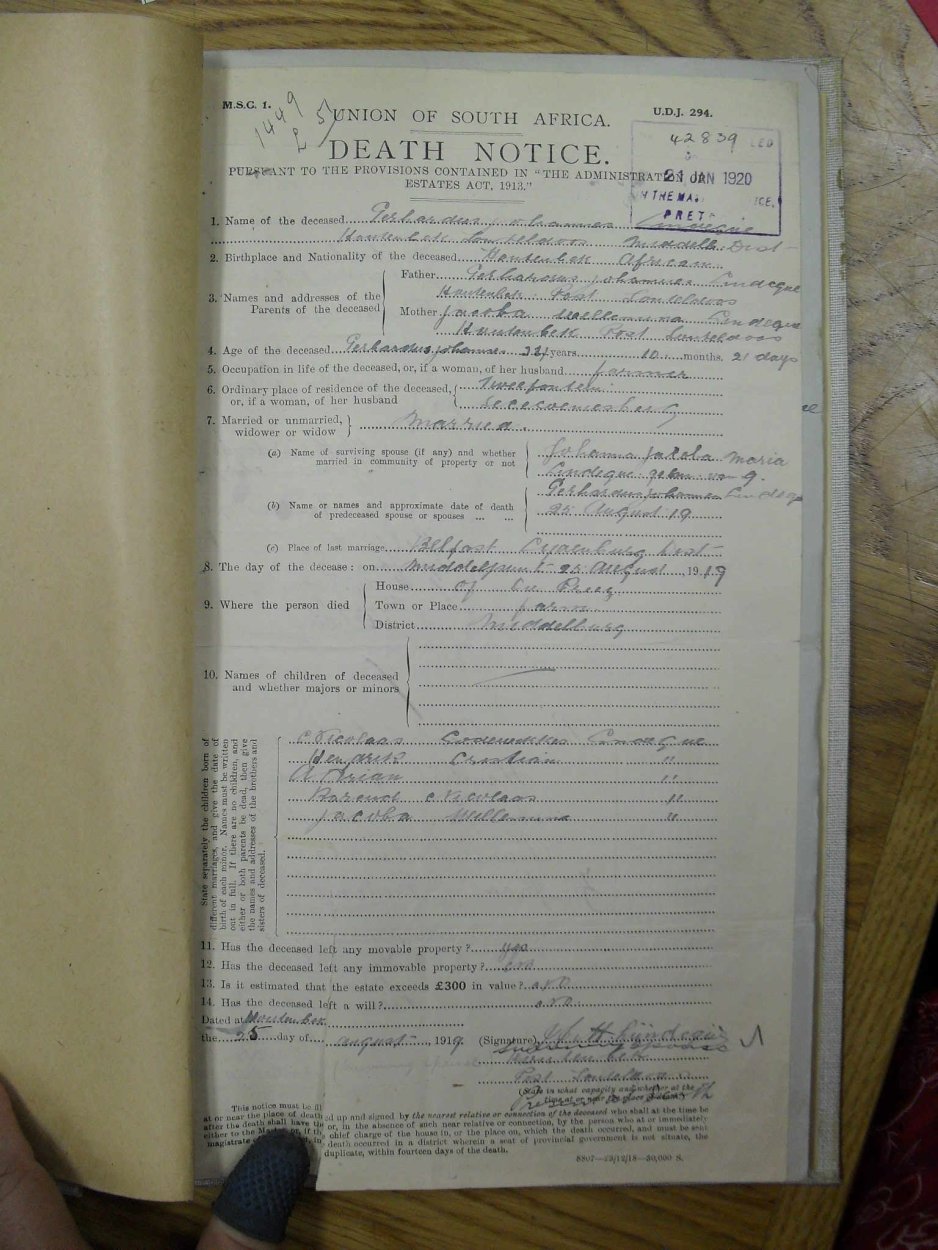 M.S.C. 1.
1449
£ 5/
UNION OF SOUTH AFRICA.
U.D.J. 294.
DEATH NOTICE.
42839
21 JAN 1920
PRET
PURSUANT TO THE PROVISIONS CONTAINED IN "THE ADMINISTRATION OF
ESTATES ACT, 1913."
1. Name of the deceased Gerhardus Johannes Lindeque
Houtenbek Middelb. Dist
2. Birthplace and Nationality of the deceased Houtenbek African
3. Names and addresses of the Parents of the deceased
Father Gerhardus Johannes Lindeque
Houtenbek Post
Mother Jacoba Willemina Lindeque
Houtenbek Post
4. Age of the deceased Gerhardus Johannes years 10 months. 21 days
5. Occupation in life of the deceased, or, if a woman, of her husband farmer
6. Ordinary place of residence of the deceased, or, if a woman, of her husband
Tweefontein
7. Married or unmarried, widower or widow Married.
(a) Name of surviving spouse (if any) and whether married in community of property or not
Johanna Jacoba Maria
Lindeque
(b) Name or names and approximate date of death of predeceased spouse or spouses ... ...
Gerhardus Johannes Lindeque
25 August 19
(c) Place of last marriage Belfast Lydenburg Dist
8. The day of the decease: on 25 August 1919
9. Where the person died
House
Town or Place farm
District Middelburg
10. Names of children of deceased and whether majors or minors
State separately the children born of different marriages, and give the date of birth of each minor. Names must be written out in full. If there are no children, and either or both parents be dead, then give the names and addresses of the brothers and sisters of deceased.
Nicolaas Lindeque
Hendrik Cristian "
Adrian "
Barend Nicolaas "
Jacoba Willemina "
11. Has the deceased left any movable property? yes
12. Has the deceased left any immovable property? no
13. Is it estimated that the estate exceeds £300 in value? no
14. Has the deceased left a will? no
Dated at Houtenbek
the 25 day of august, 1919.
(Signature) Lindeque
Houtenbek
Post
(State in what capacity and whether at the time at or near the place of death.)
This notice must be filled up and signed by the nearest relative or connection of the deceased who shall at the time be
at or near the place of death or, in the absence of such near relative or connection, by the person who at or immediately
after the death shall have the chief charge of the house in, or the place on, which the death occurred, and must be sent
either to the Master or, if the death occurred in a district wherein a seat of provincial government is not situate, the
magistrate duplicate, within fourteen days of the death.
8807—23/12/18—30,000 S.